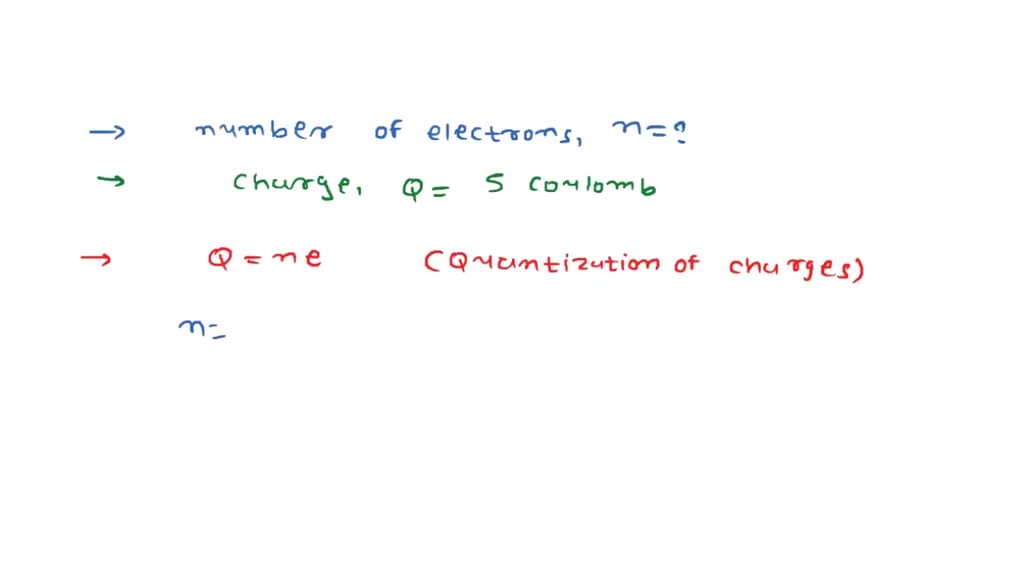 → number of electrons, n=?
→ charge, Q= 5 coulomb
→ Q = ne (Quantization of charges)
n=